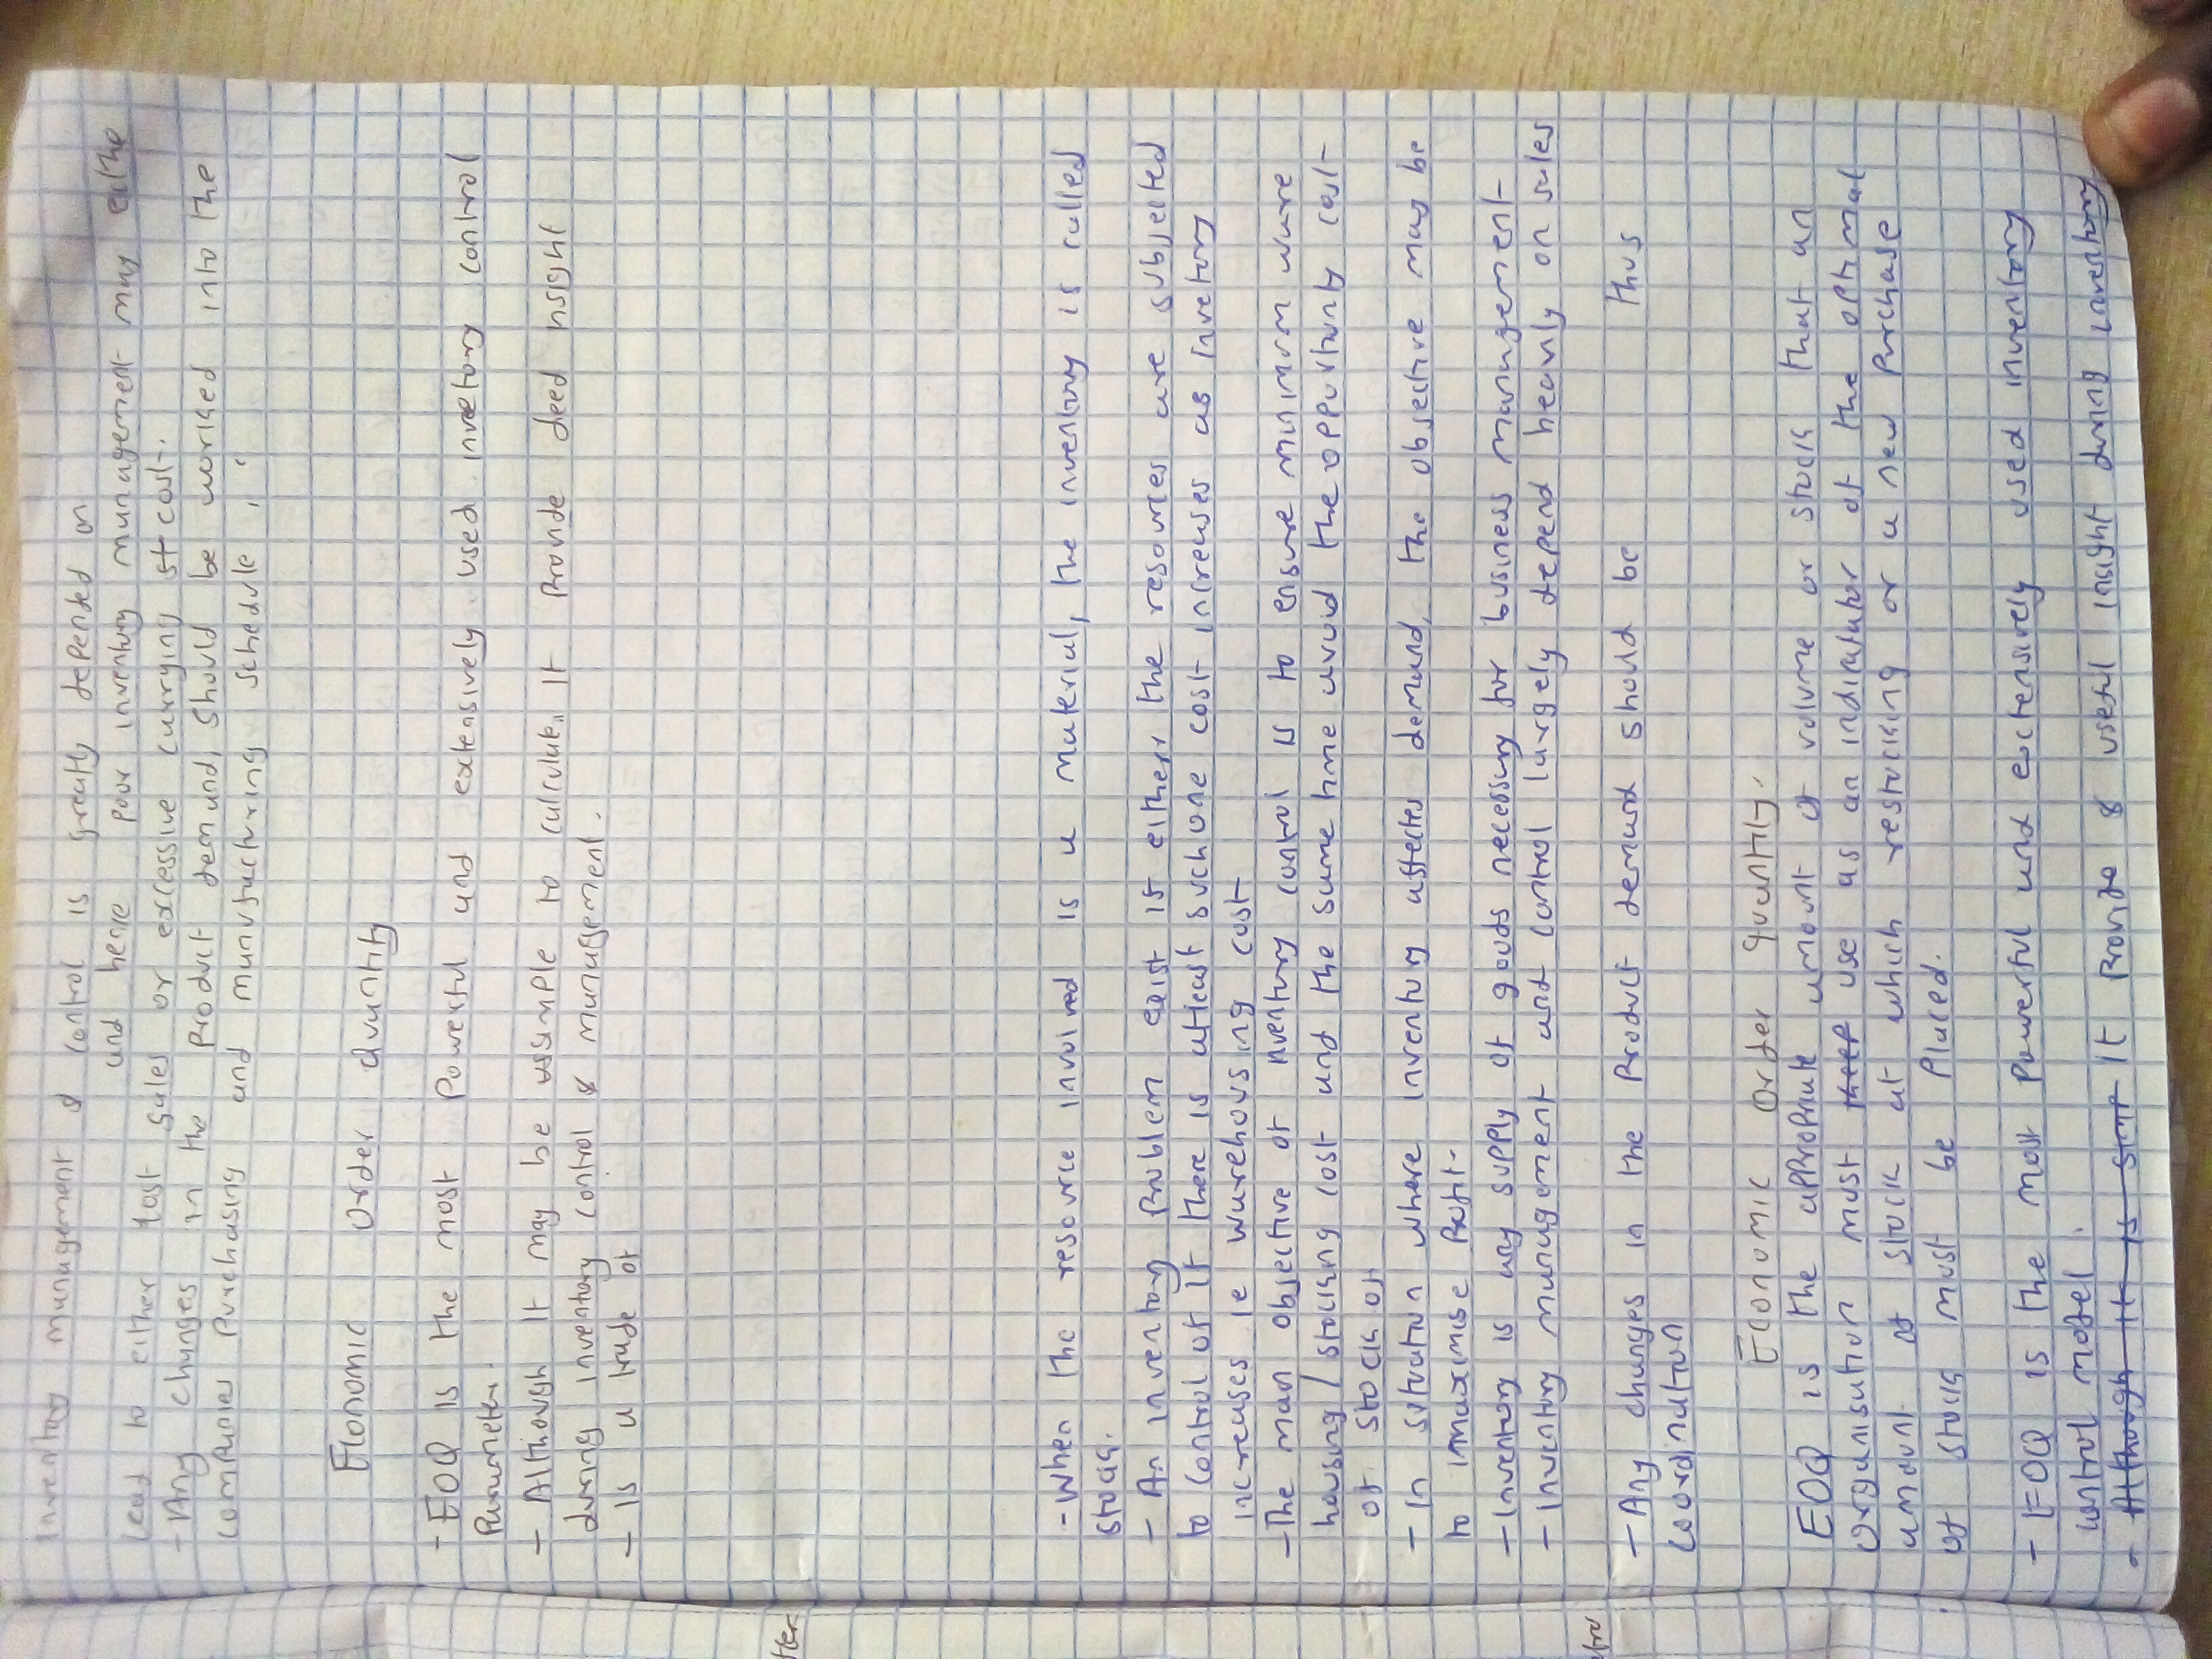 Inventory management & control is greatly depended on
and hence poor inventory management may eithe
lead to either lost sales or excessive carrying st cost.
- Any changes in the product demand, should be worked into the
companies purchasing and manufacturing schedule , ,
Economic order quantity
- EOQ is the most powerful and extensively used invetory control
Parameter.
- Although it may be assumple to calculate, it provide deed insight
during inventory control & management.
- is a trade of
- When the resource involved is a material, the inventory is called
stock.
- An inventory problem exist if either the resources are subjected
to control of if there is atleast such one cost increases as invetory
increases ie warehousing cost
- The man objective of nventory control is to ensure minimum ware
housing / stocking cost and the same time avoid the oppurtunity cost
of stock out
- In situation where inventory affectes demand, the objective may be
to maximise profit.
- Inventory is any supply of goods necessary for business management
- Inventory management and control largely depend heavily on sales
- Any changes in the product demand should be thus
coordination
Economic order quantity.
EOQ is the appropriate amount of volume or stock that an
organisation must keep use as an indicatator of the optimal
amount of stock at which restocking or a new purchase
of stock must be placed.
- EOQ is the most powerful and exctensively used inventory
control model.
- Although it is simp It provide & useful insight during inventory